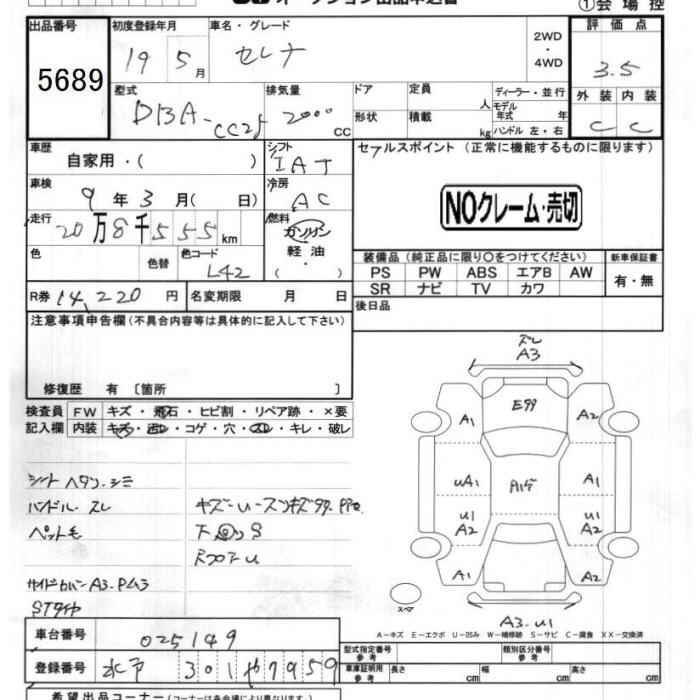 ①会場控
出品番号 初度登録年月 車名・グレード 評価点
5689 19 5月 セレナ 2WD・4WD 3.5
型式 排気量 ドア 定員 人 ディーラー・並行 外装 内装
DBA- 2000 CC 形状 積載 kg モデル年式 年 ハンドル 左・右 C C
車歴 シフト セールスポイント (正常に機能するものに限ります)
自家用・( ) IAT
車検 冷房
9年3月( 日) AC NOクレーム・売切
走行 燃料
20万8千555km ガソリン
色 色替 色コード 軽油 装備品(純正品に限り〇をつけてください) 新車保証書
L42 ( ) PS PW ABS エアB AW 有・無
SR ナビ TV カワ
R券 14,220円 名変期限 月 日 後日品
注意事項申告欄(不具合内容等は具体的に記入して下さい)
修復歴 有 〔箇所 〕
検査員 FW キズ・飛石・ヒビ割・リペア跡・×要
記入欄 内装 キズ・汚レ・コゲ・穴・スレ・キレ・破レ
ズレ
A3
A1 E99 A2
UA1 A1
U1 U1
A2 A2
A1 A2
スペア
A3.U1
シート ヘタリ.シミ
ハンドル.スレ
ペット毛
サイドカバーA3.
A―キズ E―エクボ U―凹み W―補修跡 S―サビ C―腐食 XX―交換済
車台番号 025149
登録番号 水戸 301 や7959
型式指定番号 参考 類別区分番号 参考
車庫証明用 参考 長さ cm 幅 cm 高さ cm
希望出品コーナー